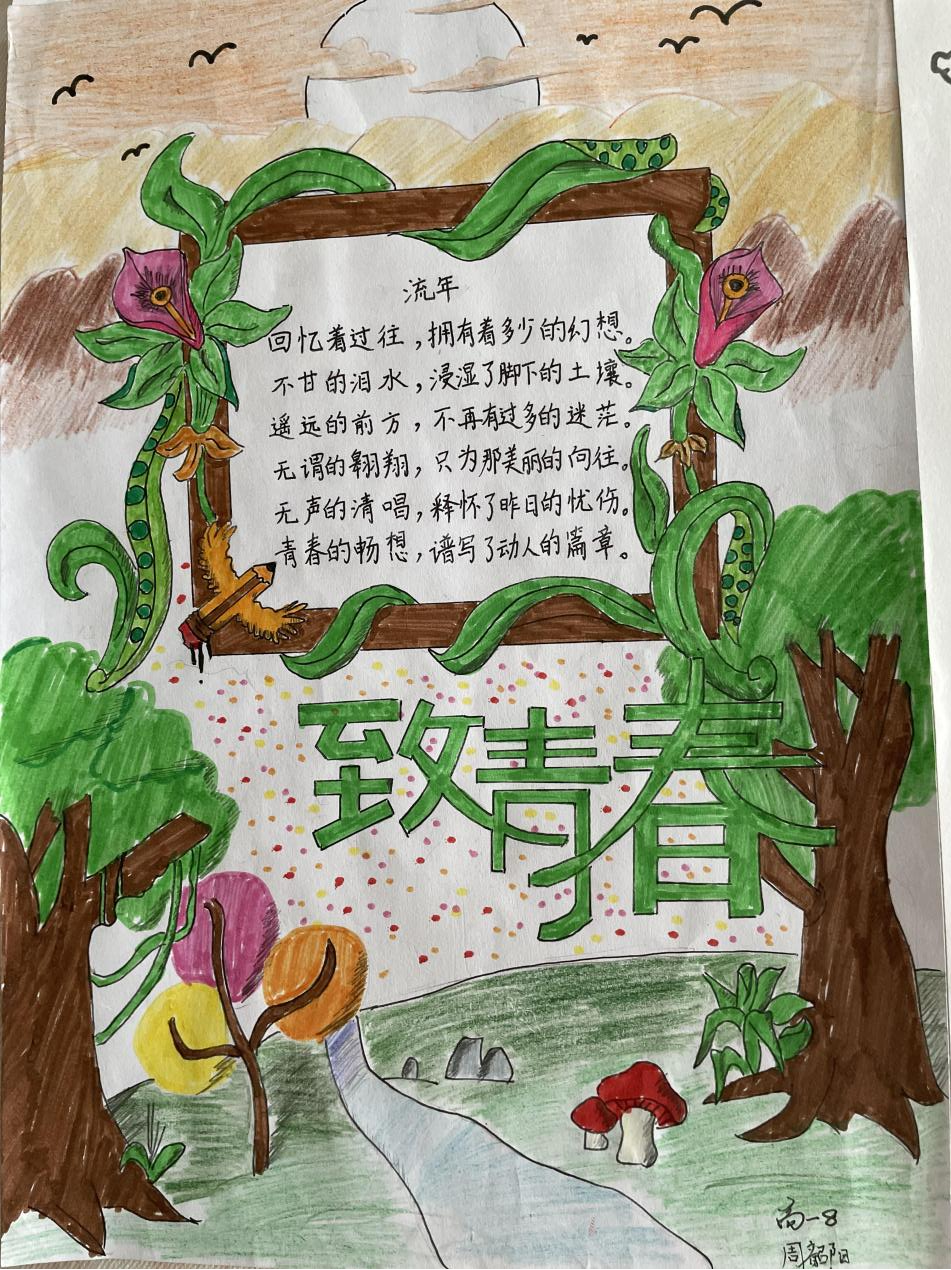 流年
回忆着过往，拥有着多少的幻想。
不甘的泪水，浸湿了脚下的土壤。
遥远的前方，不再有过多的迷茫。
无谓的翱翔，只为那美丽的向往。
无声的清唱，释怀了昨日的忧伤。
青春的畅想，谱写了动人的篇章。
致青春
高一8
周韶阳